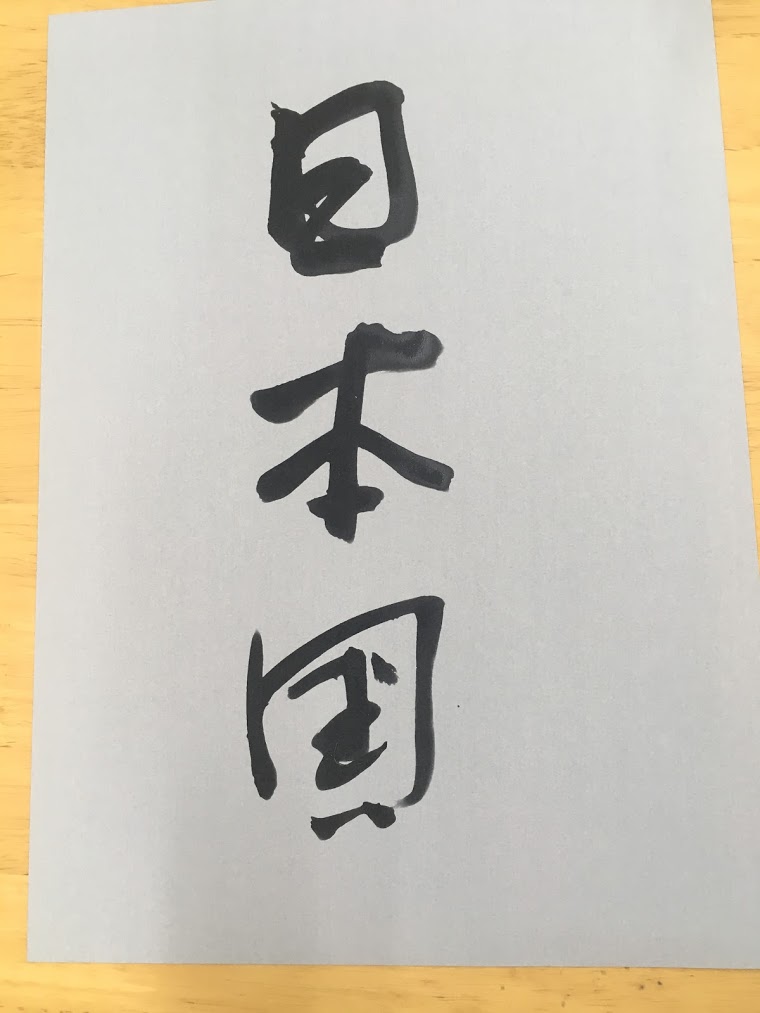 日本国